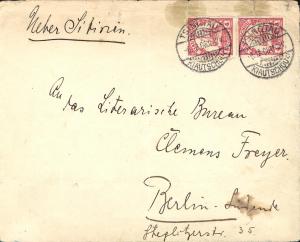 Ueber Sibirien.
TSINGTAU
KIAUTSCHOU
TSINGTAU
KIAUTSCHOU
An das Literarische Bureau
Clemens Freyer.
Berlin-
Steglitzerstr. 35